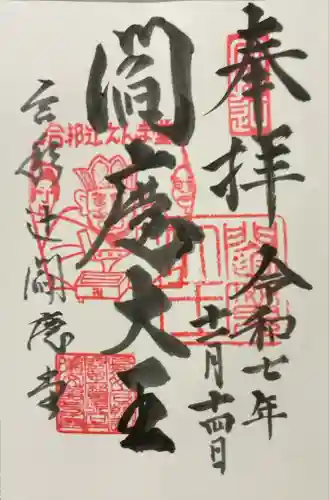 奉拝
令和七年
十二月十四日
閻魔大王
合邦辻閻魔堂
合邦辻えんま堂